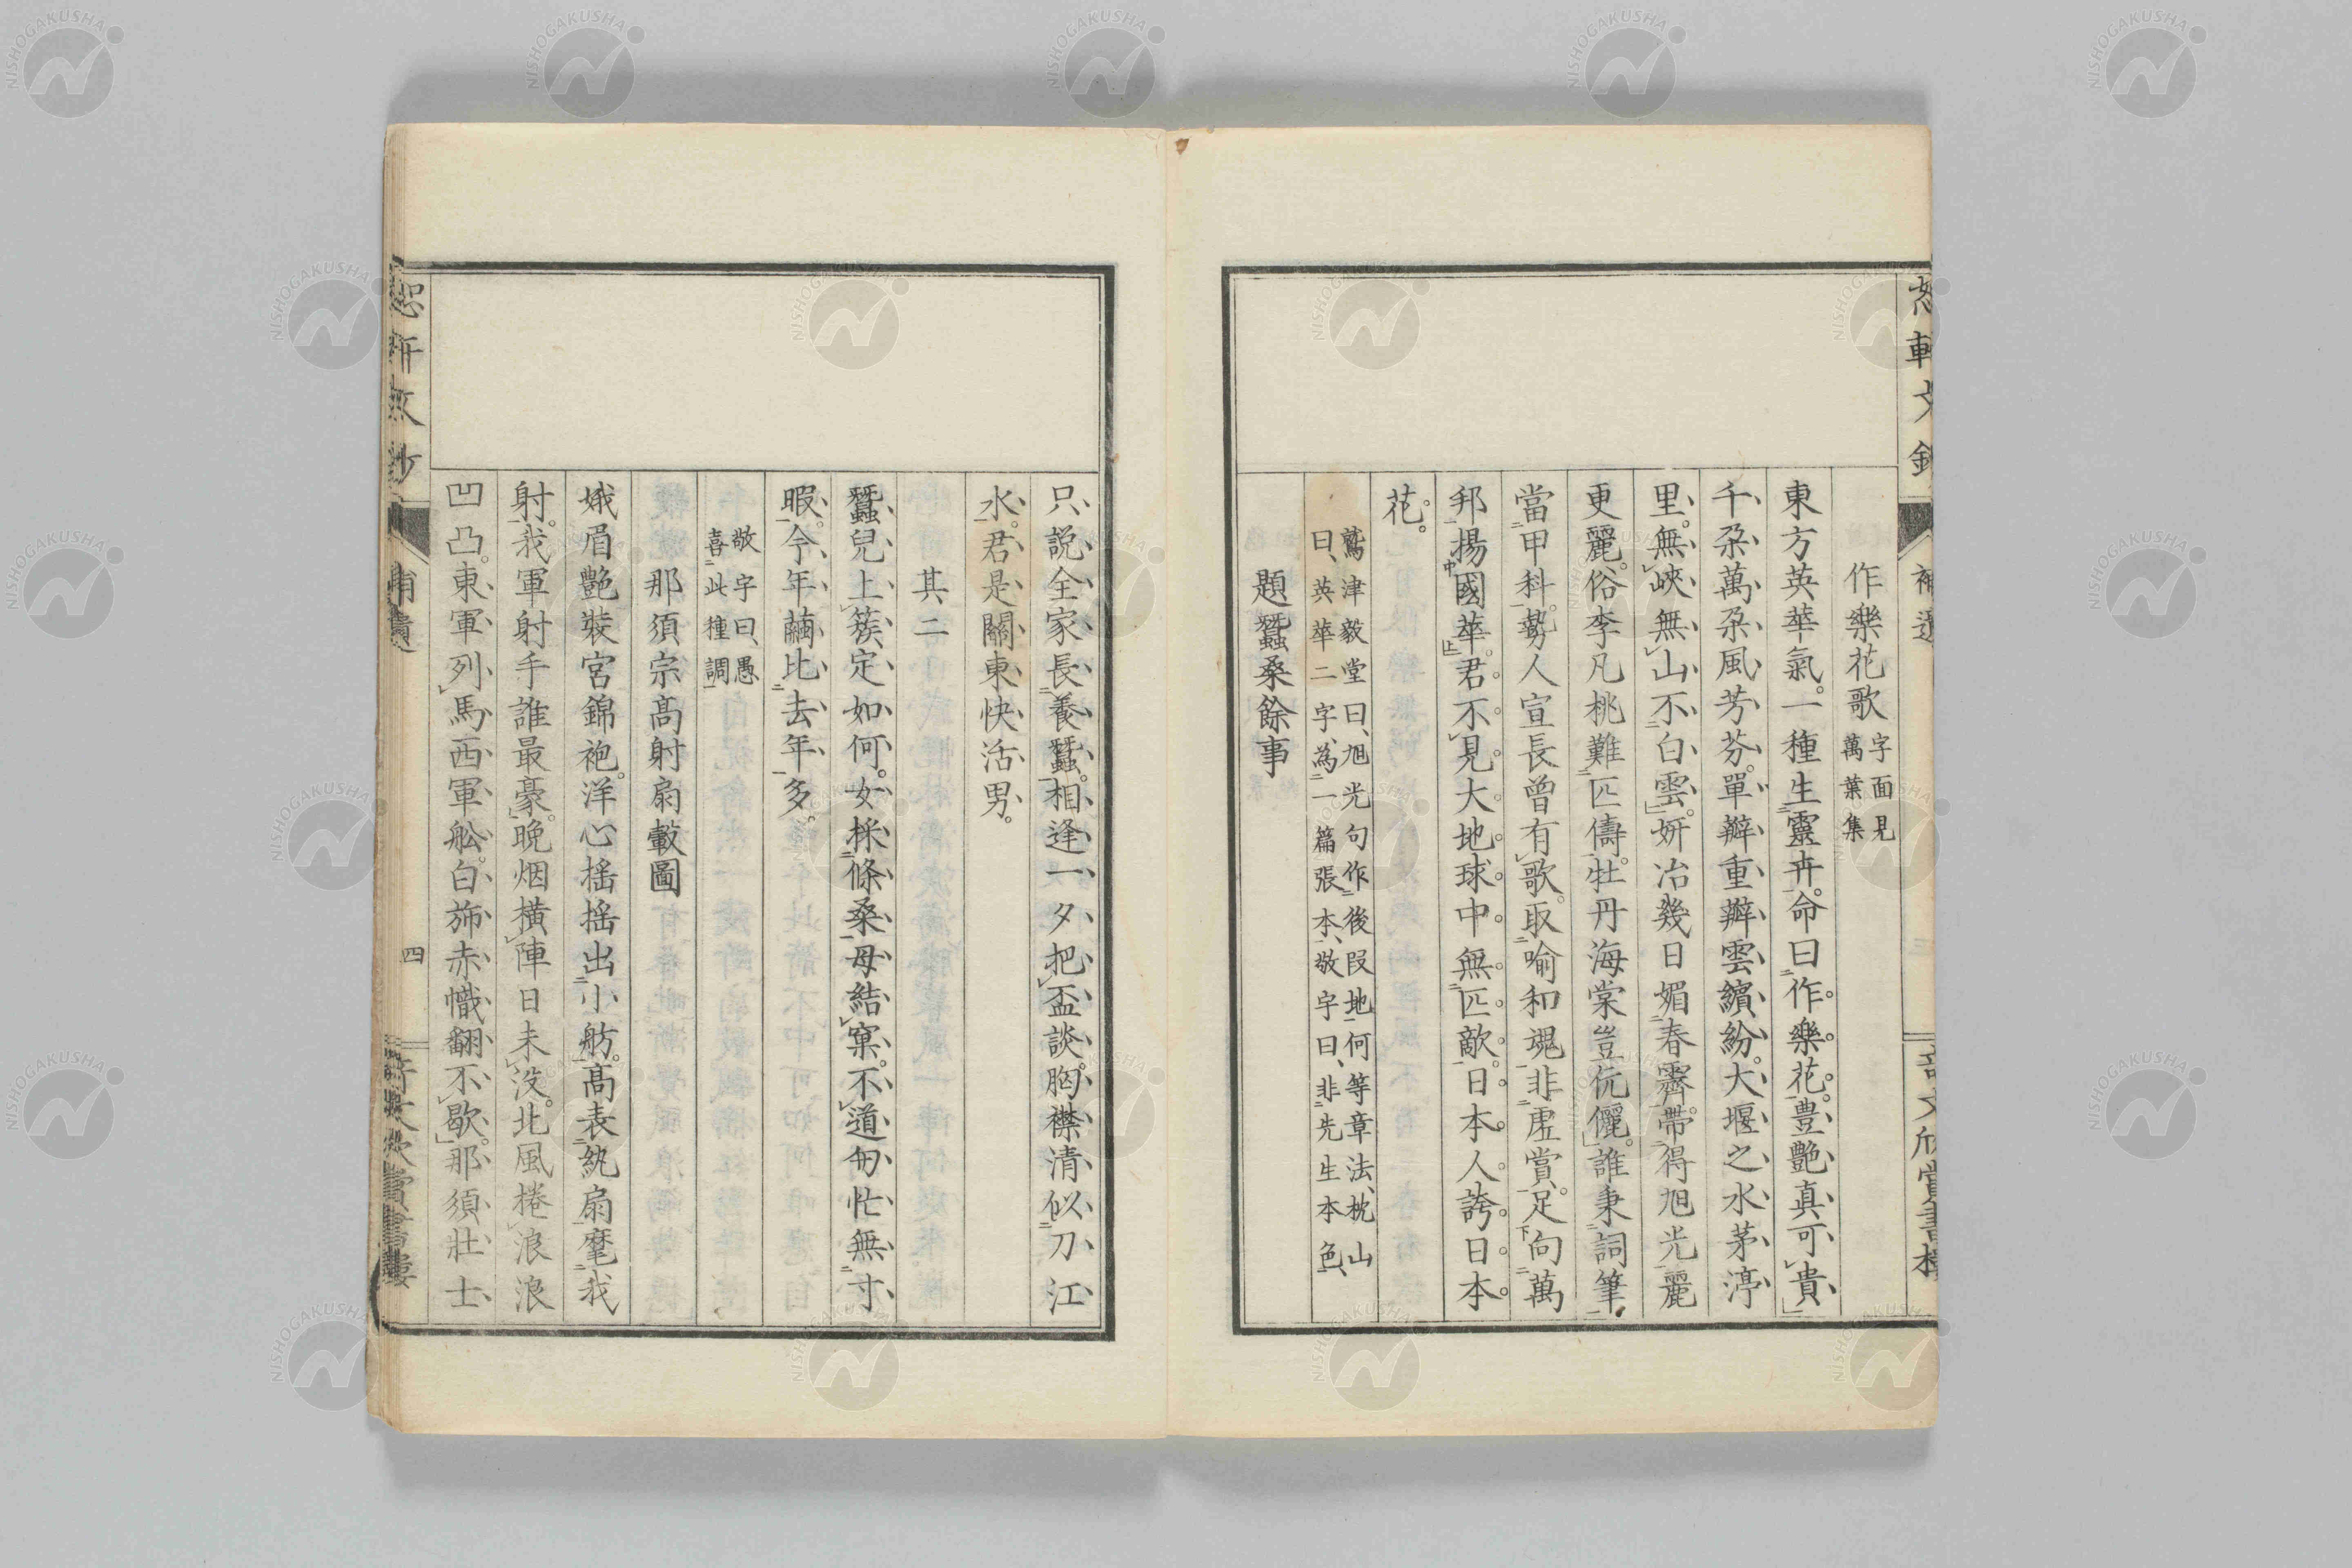 作樂花歌 字面見萬葉集
東方英華氣。一種生靈卉。命曰作樂花。豊艶真可貴
千朶萬朶風芳芬。單瓣重瓣雲繽紛。大堰之水茅渟
里。無峽無山不白雲。妍冶幾日媚春霽。帶得旭光麗
更麗。俗李凡桃難匹儔。牡丹海棠豈伉儷。誰秉詞筆
當甲科。勢人宣長曾有歌。取喻和魂非虚賞。足向萬
邦揚國華。君不見大地球中無匹敵。日本人誇日本
花。
鷲津毅堂曰、旭光句作後段地、何等章法、枕山
曰、英華二字、為一篇張本、敬字曰、非先生本色、
題蠶桑餘事
只說全家長養蠶。相逢一夕把盃談。胸襟清似刀江
水。君是關東快活男。
其二
蠶兒上簇定如何。女採條桑母結窠。不道匆忙無寸
暇。今年繭比去年多。
敬字曰、愚
喜此種調
那須宗髙射扇轂圖
娥眉艶裝宮錦袍。洋心搖搖出小舫。髙表紈扇麾我
射。我軍射手誰最豪。晩烟橫陣日未沒。北風捲浪浪
凹凸。東軍列馬西軍舩。白斾赤幟翻不歇。那須壯士
補遺
四